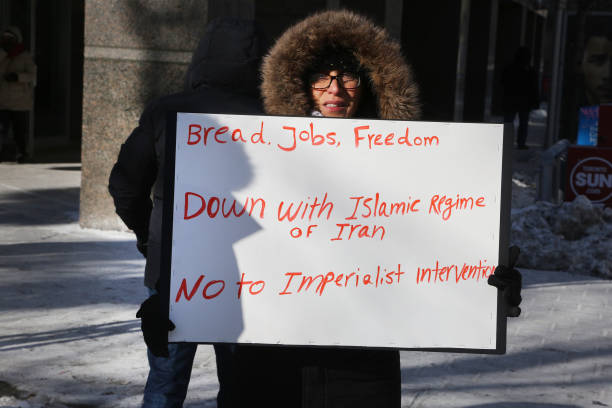 Bread, Jobs, Freedom
Down with Islamic Regime
of Iran
No to Imperialist Intervention
SUN